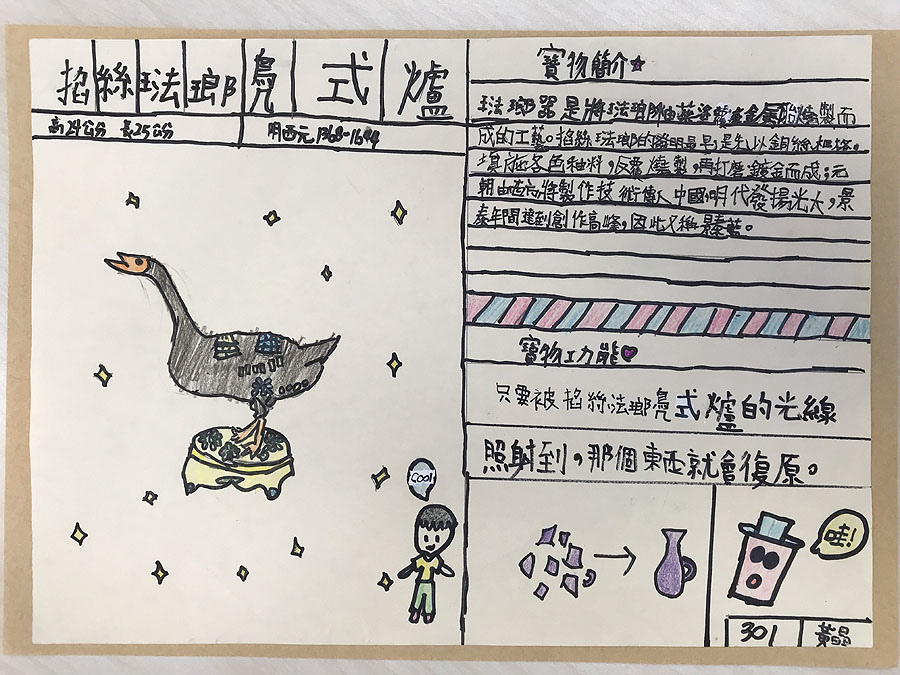 掐絲琺瑯鳧式爐
高24公分 長25公分 明西元1368-1644
寶物簡介
琺瑯器是將琺瑯釉藥塗 金屬胎燒製而
成的工藝。掐絲琺瑯的 明最早是先以銅絲
填施各色釉料,反覆燒製,再打磨鍍金而成;元
朝由西方將製作技術傳入中國,明代發揚光大,景
泰年間達到創作高峰,因此又稱景泰藍。
寶物功能
只要被掐絲琺瑯鳧式爐的光線
照射到,那個東西就會復原。
Cool
哇!
301 黃